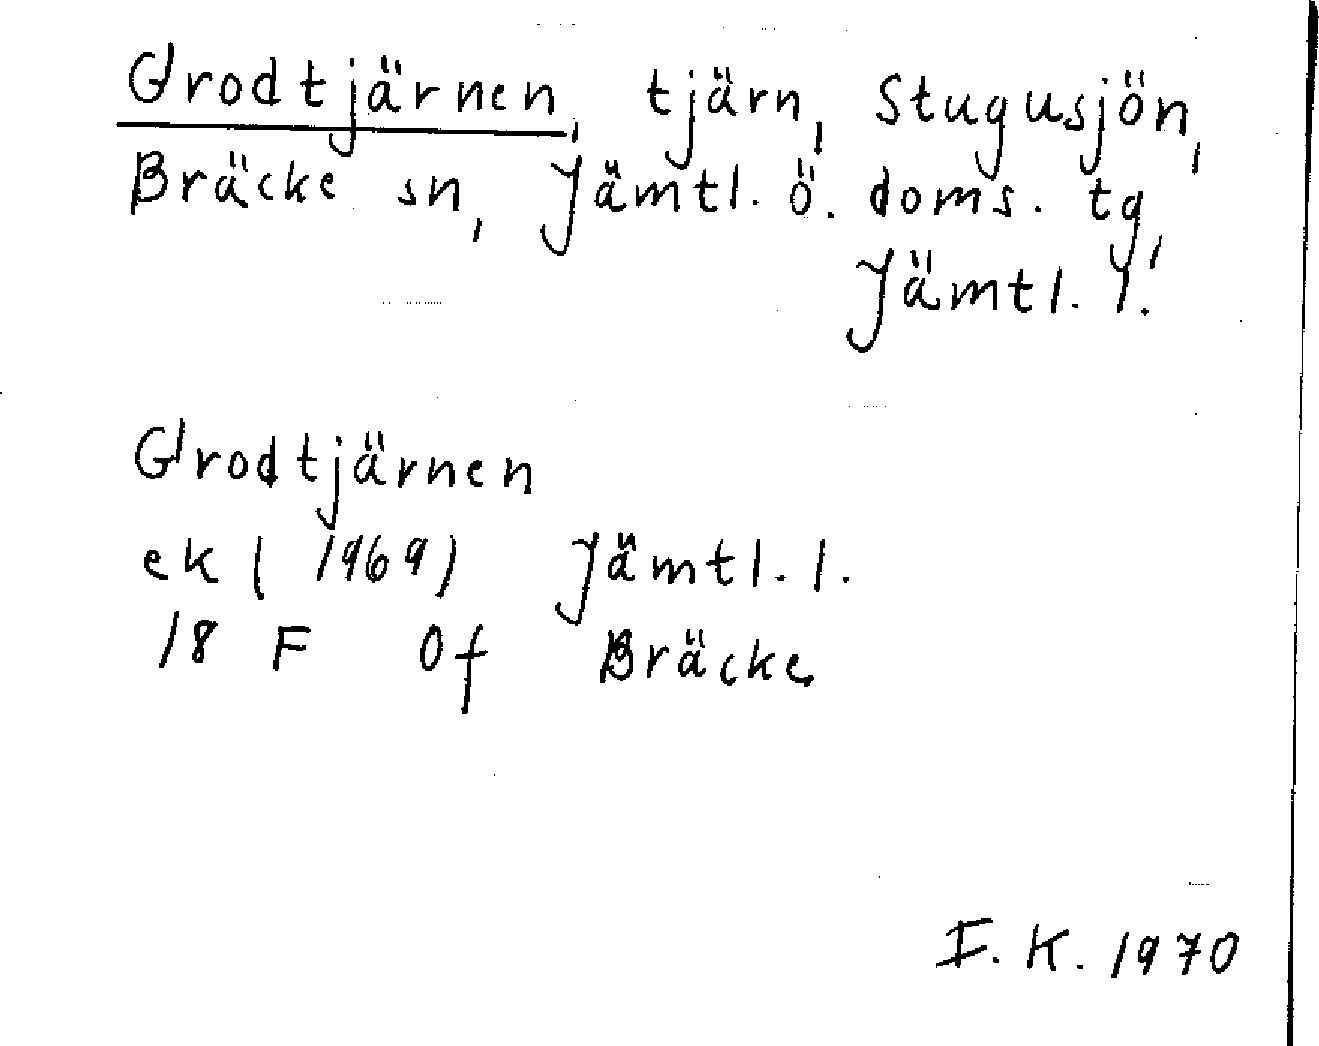 Grodtjärnen, tjärn, Stugusjön,
Bräcke sn, Jämtl. ö. doms. tg,
Jämtl. l.
Grodtjärnen
ek (1969) Jämtl. l.
18 F 0f Bräcke
I. K. 1970